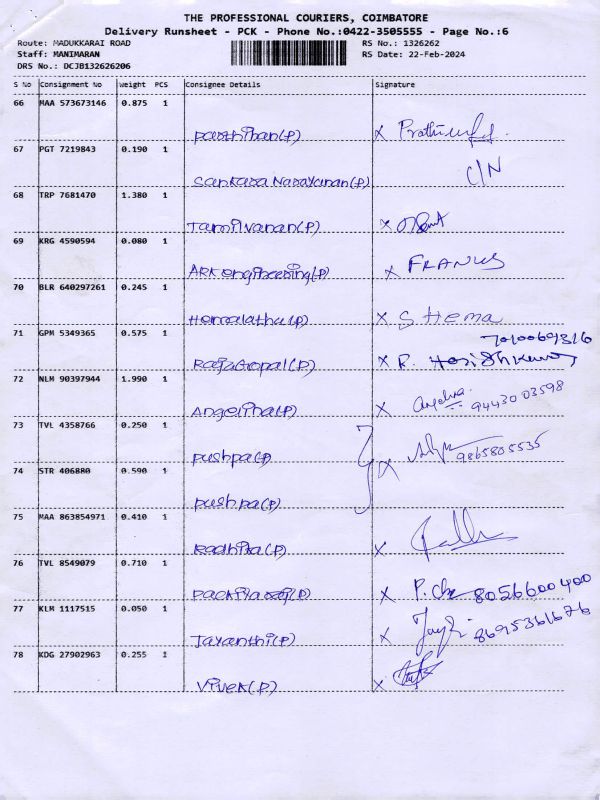 THE PROFESSIONAL COURIERS, COIMBATORE
Delivery Runsheet - PCK - Phone No.:0422-3505555 - Page No.:6
Route: MADUKKARAI ROAD RS No.: 1326262
Staff: MANIMARAN RS Date: 22-Feb-2024
DRS No.: DCJB132626206
S No Consignment No Weight PCS Consignee Details Signature
66 MAA 573673146 0.875 1
Parthiban(P) x
67 PGT 7219843 0.190 1
Sankara Narayanan(P) C/N
68 TRP 7681470 1.380 1
Tamilvanan(P) x
69 KRG 4590594 0.080 1
ARK engineering(P) x FRANKS
70 BLR 640297261 0.245 1
Hemalatha(P) x S. Hema
71 GPM 5349365 0.575 1 7010069316
RajaGopal(P) x R.
72 NLM 90397944 1.990 1
Angelina(P) x 9443003598
73 TVL 4358766 0.250 1
pushpa(P) x 9865805535
74 STR 406880 0.590 1
pushpa(P)
75 MAA 863854971 0.410 1
Radhika(P) x
76 TVL 8549079 0.710 1
Packiaraj(P) x P. 8056600400
77 KLM 1117515 0.050 1
Jayanthi(P) x 8695361676
78 KDG 27902963 0.255 1
Vivek(P) x